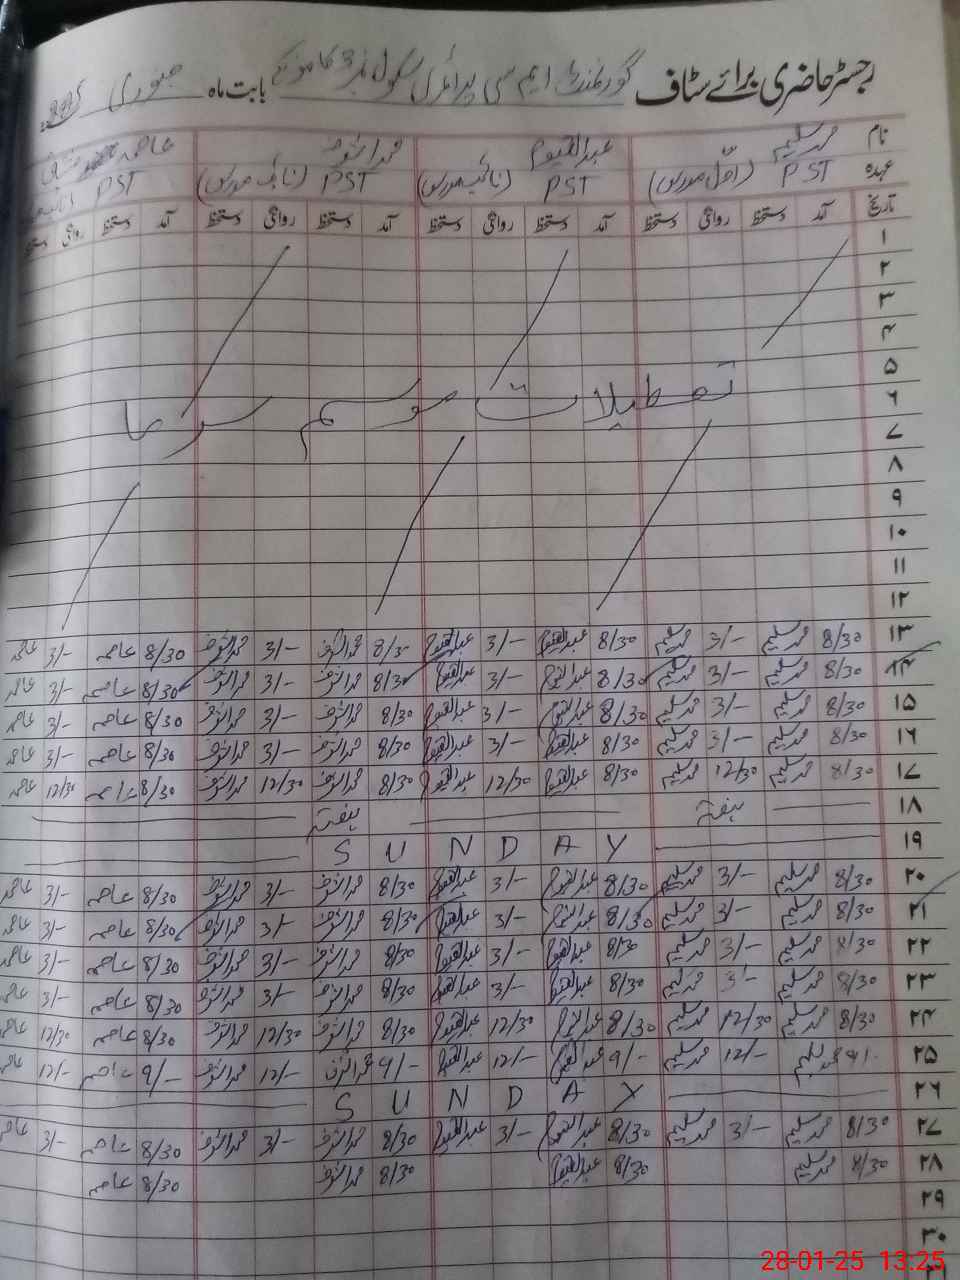 رجسٹر حاضری برائے سٹاف گورنمنٹ ایم سی پرائمری سکول نمبر 3 کامونکے بابت ماہ جنوری 2025
نام محمد سلیم عبدالقیوم محمد اشرف عاصمہ
عہدہ PST (اول مدرس) PST (نائب مدرس) PST (نائب مدرس) PST
تاریخ آمد دستخط روانگی دستخط آمد دستخط روانگی دستخط آمد دستخط روانگی دستخط آمد دستخط روانگی دستخط
۱
۲
۳
۴
۵
۶ تعطیلات موسم سرما
۷
۸
۹
۱۰
۱۱
۱۲
۱۳ 8/30 محمد سلیم 3/- محمد سلیم 8/30 عبدالقیوم 3/- عبدالقیوم 8/30 محمد اشرف 3/- محمد اشرف 8/30 عاصمہ 3/- عاصمہ
۱۴ 8/30 محمد سلیم 3/- محمد سلیم 8/30 عبدالقیوم 3/- عبدالقیوم 8/30 محمد اشرف 3/- محمد اشرف 8/30 عاصمہ 3/- عاصمہ
۱۵ 8/30 محمد سلیم 3/- محمد سلیم 8/30 عبدالقیوم 3/- عبدالقیوم 8/30 محمد اشرف 3/- محمد اشرف 8/30 عاصمہ 3/- عاصمہ
۱۶ 8/30 محمد سلیم 3/- محمد سلیم 8/30 عبدالقیوم 3/- عبدالقیوم 8/30 محمد اشرف 3/- محمد اشرف 8/30 عاصمہ 3/- عاصمہ
۱۷ 8/30 محمد سلیم 12/30 محمد سلیم 8/30 عبدالقیوم 12/30 عبدالقیوم 8/30 محمد اشرف 12/30 محمد اشرف 8/30 عاصمہ 12/30 عاصمہ
۱۸ ہفتہ ہفتہ
۱۹ SUNDAY
۲۰ 8/30 محمد سلیم 3/- محمد سلیم 8/30 عبدالقیوم 3/- عبدالقیوم 8/30 محمد اشرف 3/- محمد اشرف 8/30 عاصمہ 3/- عاصمہ
۲۱ 8/30 محمد سلیم 3/- محمد سلیم 8/30 عبدالقیوم 3/- عبدالقیوم 8/30 محمد اشرف 3/- محمد اشرف 8/30 عاصمہ 3/- عاصمہ
۲۲ 8/30 محمد سلیم 3/- محمد سلیم 8/30 عبدالقیوم 3/- عبدالقیوم 8/30 محمد اشرف 3/- محمد اشرف 8/30 عاصمہ 3/- عاصمہ
۲۳ 8/30 محمد سلیم 3/- محمد سلیم 8/30 عبدالقیوم 3/- عبدالقیوم 8/30 محمد اشرف 3/- محمد اشرف 8/30 عاصمہ 3/- عاصمہ
۲۴ 8/30 محمد سلیم 12/30 محمد سلیم 8/30 عبدالقیوم 12/30 عبدالقیوم 8/30 محمد اشرف 12/30 محمد اشرف 8/30 عاصمہ 12/30 عاصمہ
۲۵ 9/- محمد سلیم 12/- محمد سلیم 9/- عبدالقیوم 12/- عبدالقیوم 9/- محمد اشرف 12/- محمد اشرف 9/- عاصمہ 12/- عاصمہ
۲۶ SUNDAY
۲۷ 8/30 محمد سلیم 3/- محمد سلیم 8/30 عبدالقیوم 3/- عبدالقیوم 8/30 محمد اشرف 3/- محمد اشرف 8/30 عاصمہ 3/- عاصمہ
۲۸ 8/30 محمد سلیم 8/30 عبدالقیوم 8/30 محمد اشرف 8/30 عاصمہ
۲۹
۳۰
۳۱
28-01-25 13:25